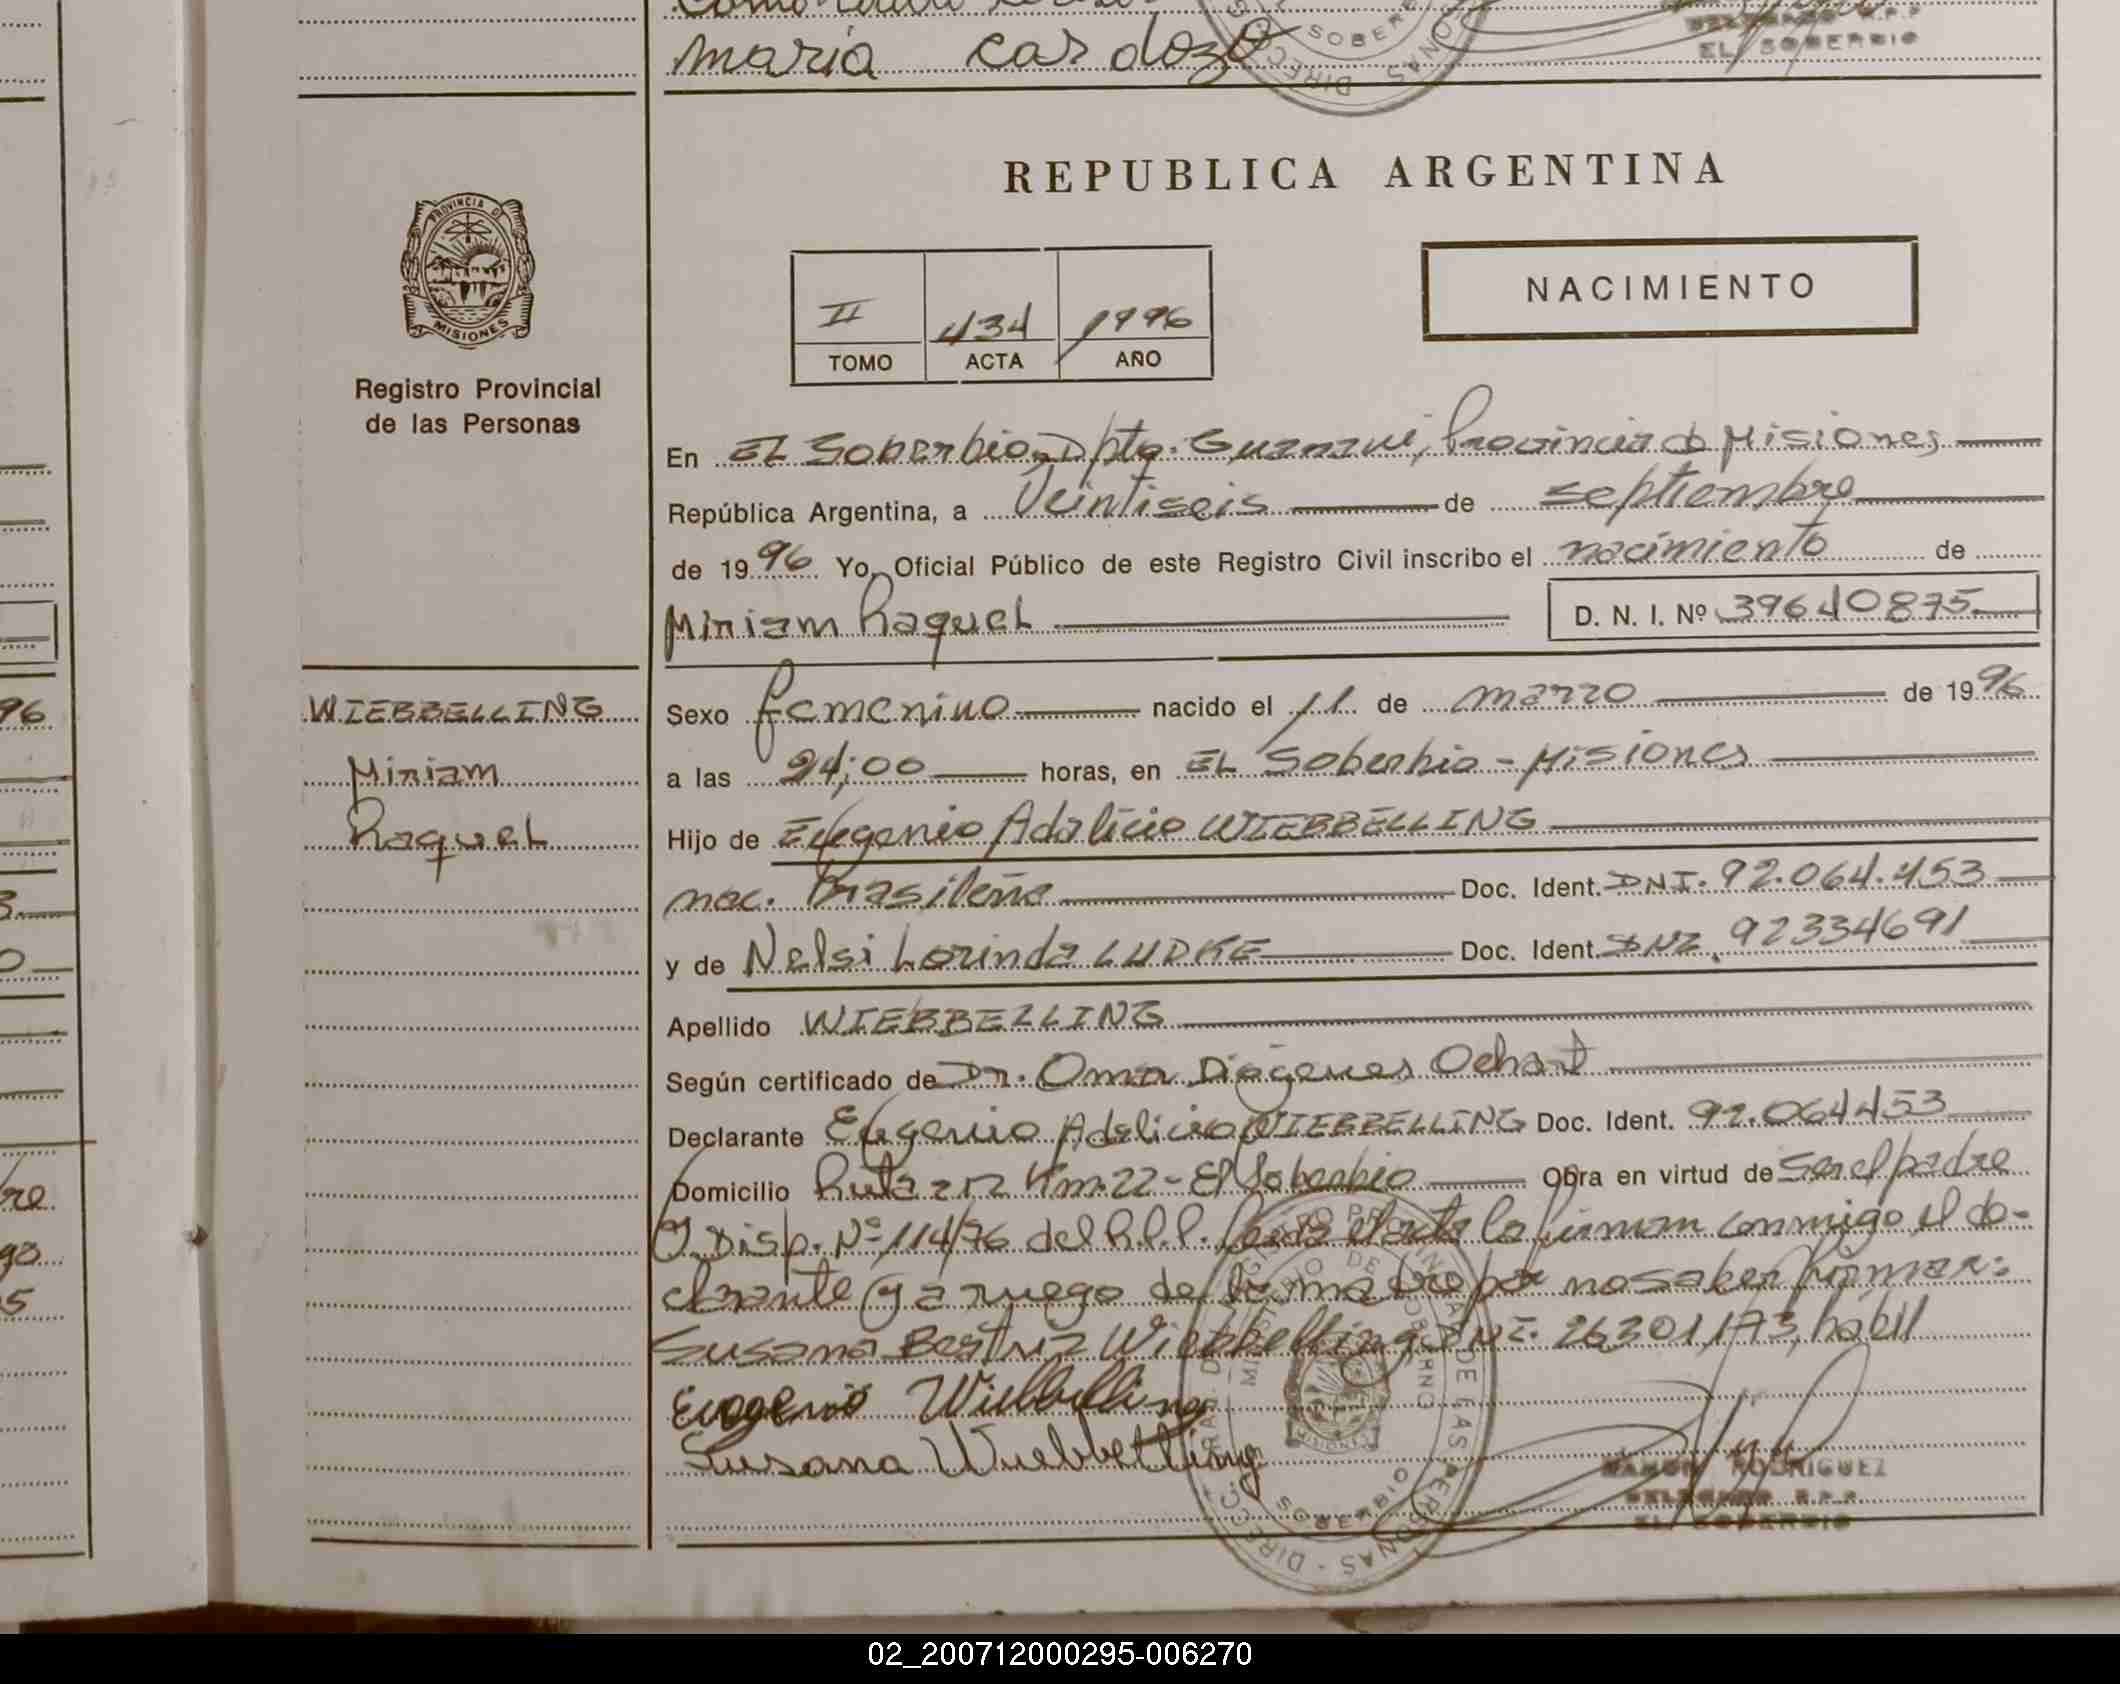 maria cardozo
EL SOBERBIO
REPUBLICA ARGENTINA
PROVINCIA DE MISIONES
NACIMIENTO
II 434 1996
TOMO ACTA AÑO
Registro Provincial
de las Personas
En EL Soberbio, Dpto. Guaraní, Provincia de Misiones
República Argentina, a Veintiseis de septiembre
de 1996 Yo, Oficial Público de este Registro Civil inscribo el nacimiento de
Miriam Raquel D. N. I. Nº 39640875
WIEBBELLING
Miriam
Raquel
Sexo femenino nacido el 11 de marzo de 1996
a las 24:00 horas, en EL Soberbio - Misiones
Hijo de Eugenio Adalicio WIEBBELLING
nac. Brasileña Doc. Ident. DNI. 92.064.453
y de Nelsi Lorinda LUDKE Doc. Ident. DNI. 92334691
Apellido WIEBBELLING
Según certificado de Dr. Omar Diógenes Ochart
Declarante Eugenio Adalicio WIEBBELLING Doc. Ident. 92.064453
Domicilio Ruta 212 Km.22 - El Soberbio Obra en virtud de ser el padre
y Disp. Nº 114/76 del R.P.P. Leída el acta la firman conmigo el de-
clarante y a ruego de la madre por no saber firmar:
Susana Beatriz Wiebbelling DNI. 26301173, hábil
Eugenio Wiebbelling
Susana Wiebbelling
RAMON RODRIGUEZ
DELEGADO R.P.P.
EL SOBERBIO
02_200712000295-006270